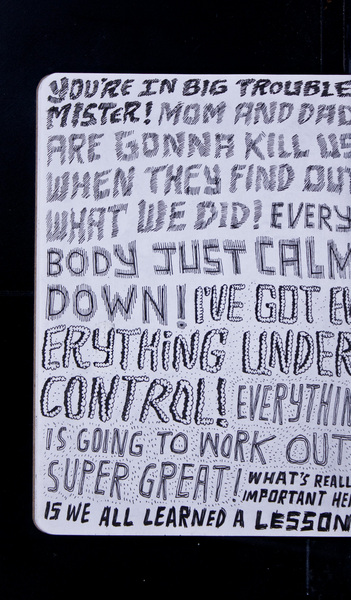 YOU'RE IN BIG TROUBLE
MISTER! MOM AND DAD
ARE GONNA KILL US
WHEN THEY FIND OUT
WHAT WE DID! EVERY
BODY JUST CALM
DOWN! I'VE GOT EV
ERYTHING UNDER
CONTROL! EVERYTHIN
IS GOING TO WORK OUT
SUPER GREAT! WHAT'S REALL
IMPORTANT HE
IS WE ALL LEARNED A LESSON